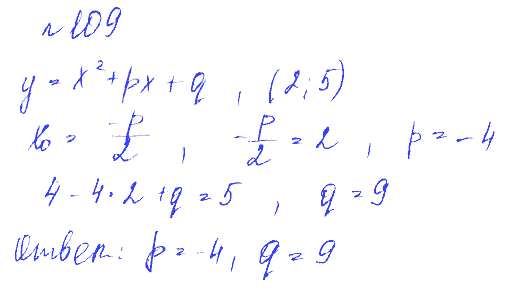 №109
y = x² + px + q , (2; 5)
x₀ = -p/2 , -p/2 = 2 , p = -4
4 - 4·2 + q = 5 , q = 9
Ответ: p = -4, q = 9